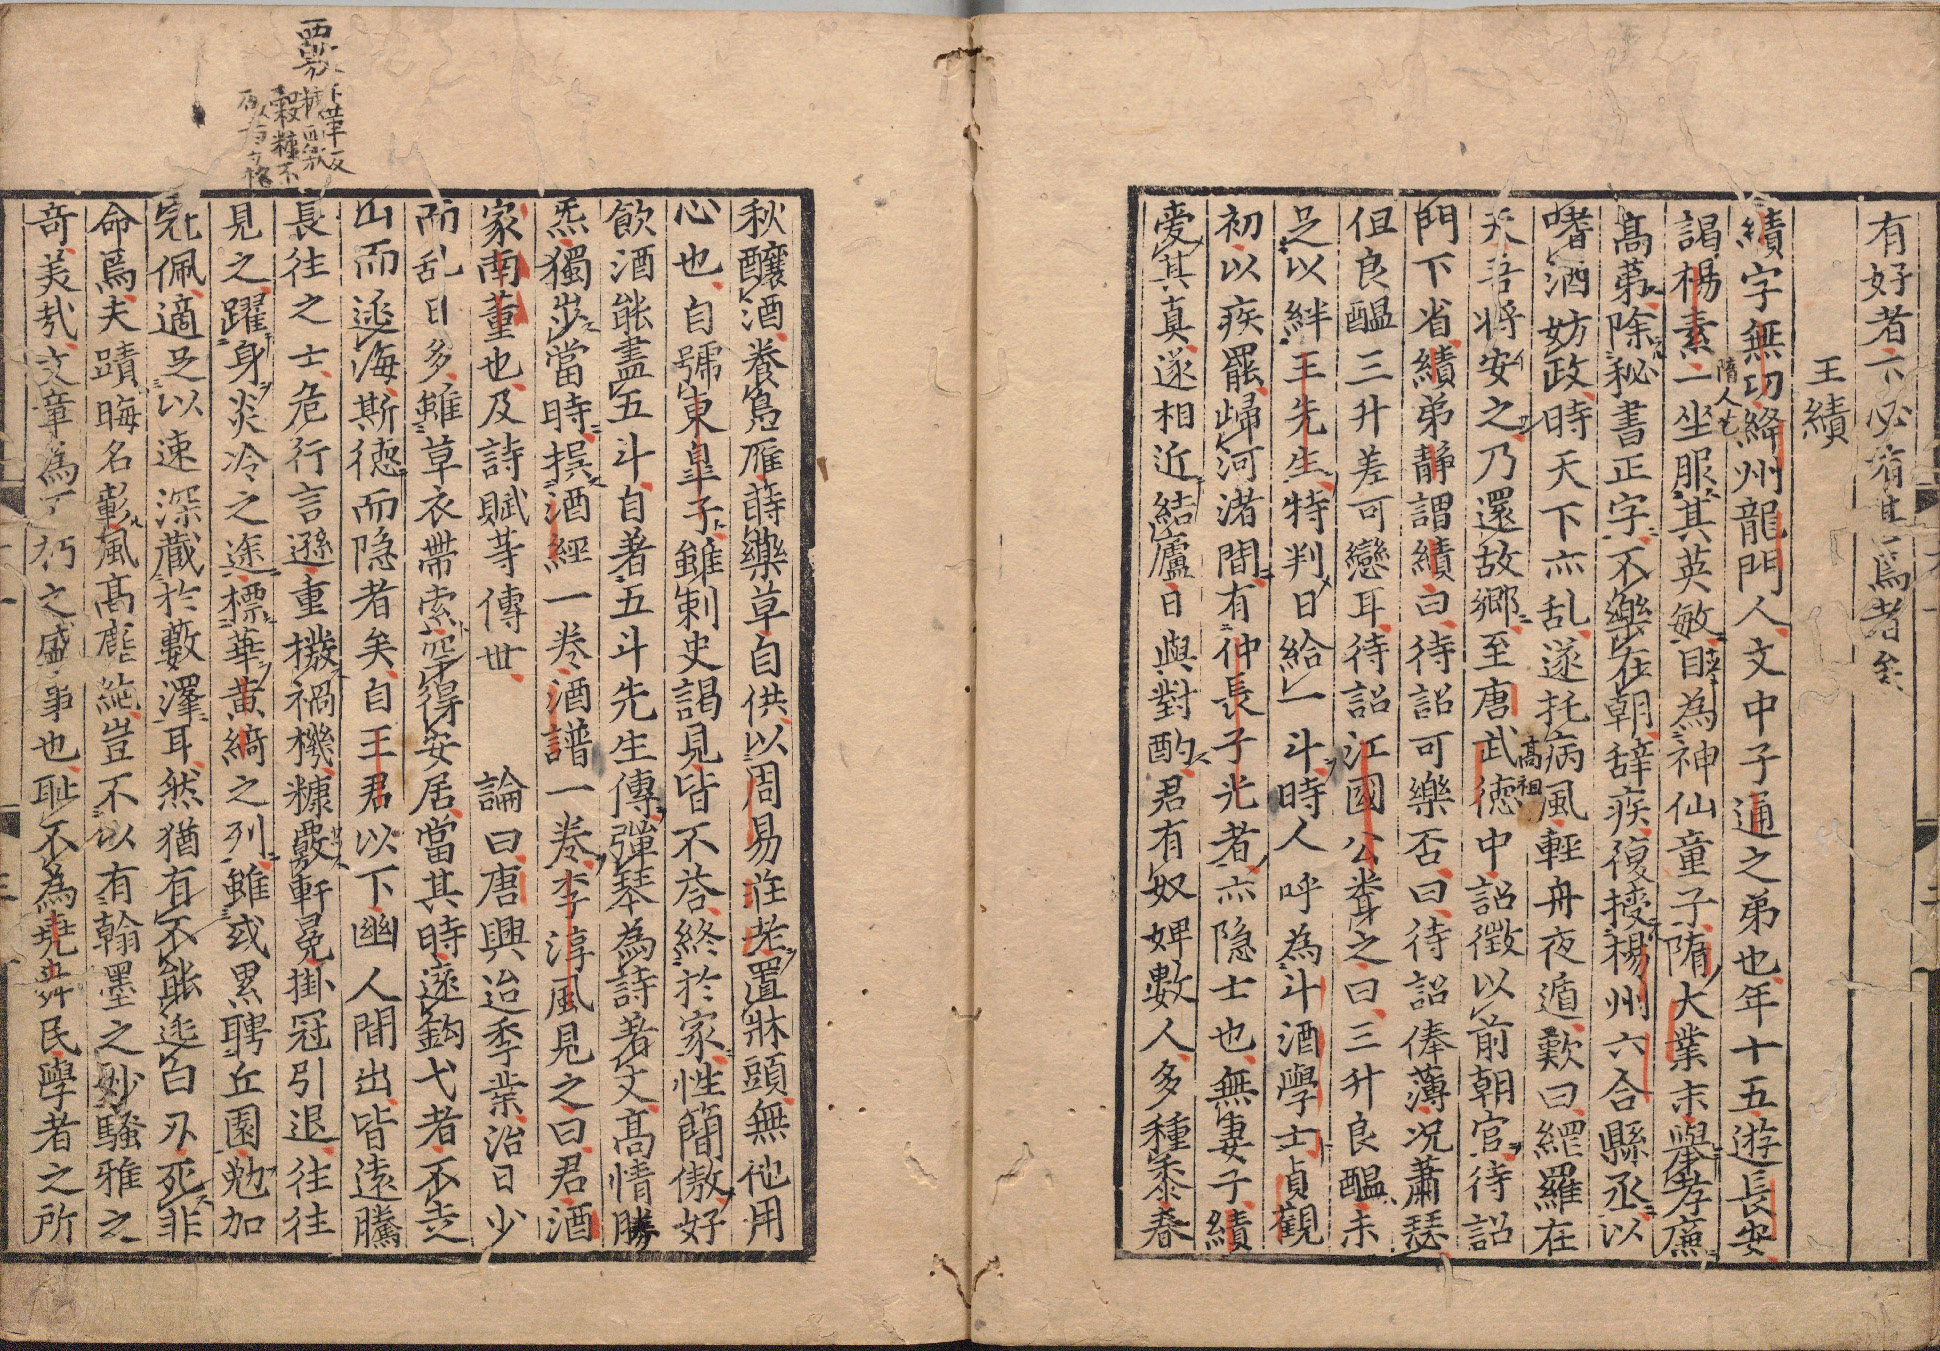 有好者不必有甚焉者矣
王績
績字無功絳州龍門人文中子通之弟也年十五遊長安
謁楊素一坐服其英敏目為神仙童子隋大業末舉孝廉
隋人也
高苐除秘書正字不樂在朝辭疾復授楊州六合縣丞以
嗜酒妨政時天下亦乱遂托病風輕舟夜遁歎曰網羅在
天吾將安之乃還故郷至唐武徳中詔徴以前朝官待詔
高祖
門下省績弟静謂績曰待詔可樂否曰待詔俸薄况蕭瑟
但良醖三升差可戀耳待詔江國公聞之曰三升良醖未
足以絆王先生特判日給一斗時人呼為斗酒學士貞觀
初以疾罷歸河渚間有仲長子光者亦隐士也無妻子績
愛其真遂相近結廬日與對酌君有奴婢數人多種黍春
秋釀酒養鳬雁蒔藥草自供以周易荘老置牀頭無他用
心也自號東皐子雖刺史謁見皆不荅終於家性簡傲好
飲酒能盡五斗自著五斗先生傳彈琴為詩著文高情勝
炁獨步當時撰酒經一卷酒譜一卷李淳風見之曰君酒
家南董也及詩賦䒭傳世 論曰唐興迨季業治日少
而乱日多雖草衣帶索罕得安居當其時遠釣弋者不走
山而逃海斯徳而隐者矣自王君以下幽人間出皆遠騰
長往之士危行言遜重撥禍機糠覈軒冕掛冠引退往往
見之躍身炎冷之途標華黄綺之列雖或累聘丘園勉加
冕佩適足以速深藏於藪澤耳然猶有不能逃白刄死非
命焉夫蹟晦名彰風高塵絶豈不以有翰墨之妙騷雅之
奇羙哉文章為不朽之盛事也耻不為堯舜民學者之所
覈
下革反
糠覈
穀糠不